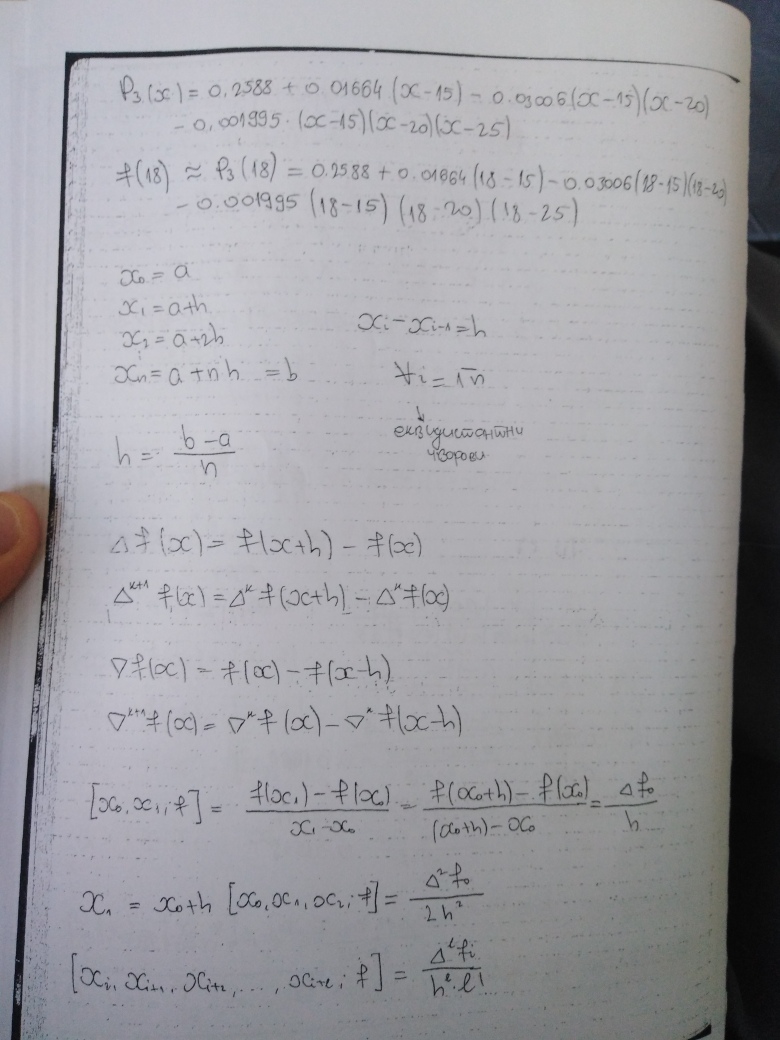 P₃(x) = 0.2588 + 0.01664 (x-15) - 0.03006 (x-15)(x-20)
- 0,001995·(x-15)(x-20)(x-25)
f(18) ≈ P₃(18) = 0.2588 + 0.01664 (18-15) - 0.03006 (18-15)(18-20)
- 0.001995 (18-15) (18-20) (18-25)
x₀ = a
x₁ = a+h
x₂ = a+2h
xᵢ - xᵢ₋₁ = h
xₙ = a + n h = b
∀i = 1,n
еквидистантни
чворови
h = (b-a)/n
Δf(x) = f(x+h) - f(x)
Δᵏ⁺¹ f(x) = Δᵏ f(x+h) - Δᵏ f(x)
∇f(x) = f(x) - f(x-h)
∇ᵏ⁺¹ f(x) = ∇ᵏ f(x) - ∇ᵏ f(x-h)
[x₀, x₁; f] = (f(x₁) - f(x₀))/(x₁-x₀) = (f(x₀+h) - f(x₀))/((x₀+h) - x₀) = Δf₀/h
x₁ = x₀+h [x₀, x₁, x₂; f] = Δ²f₀/2h²
[xᵢ, xᵢ₊₁, xᵢ₊₂, ..., xᵢ₊ₗ; f] = Δˡfᵢ/hˡ·l!